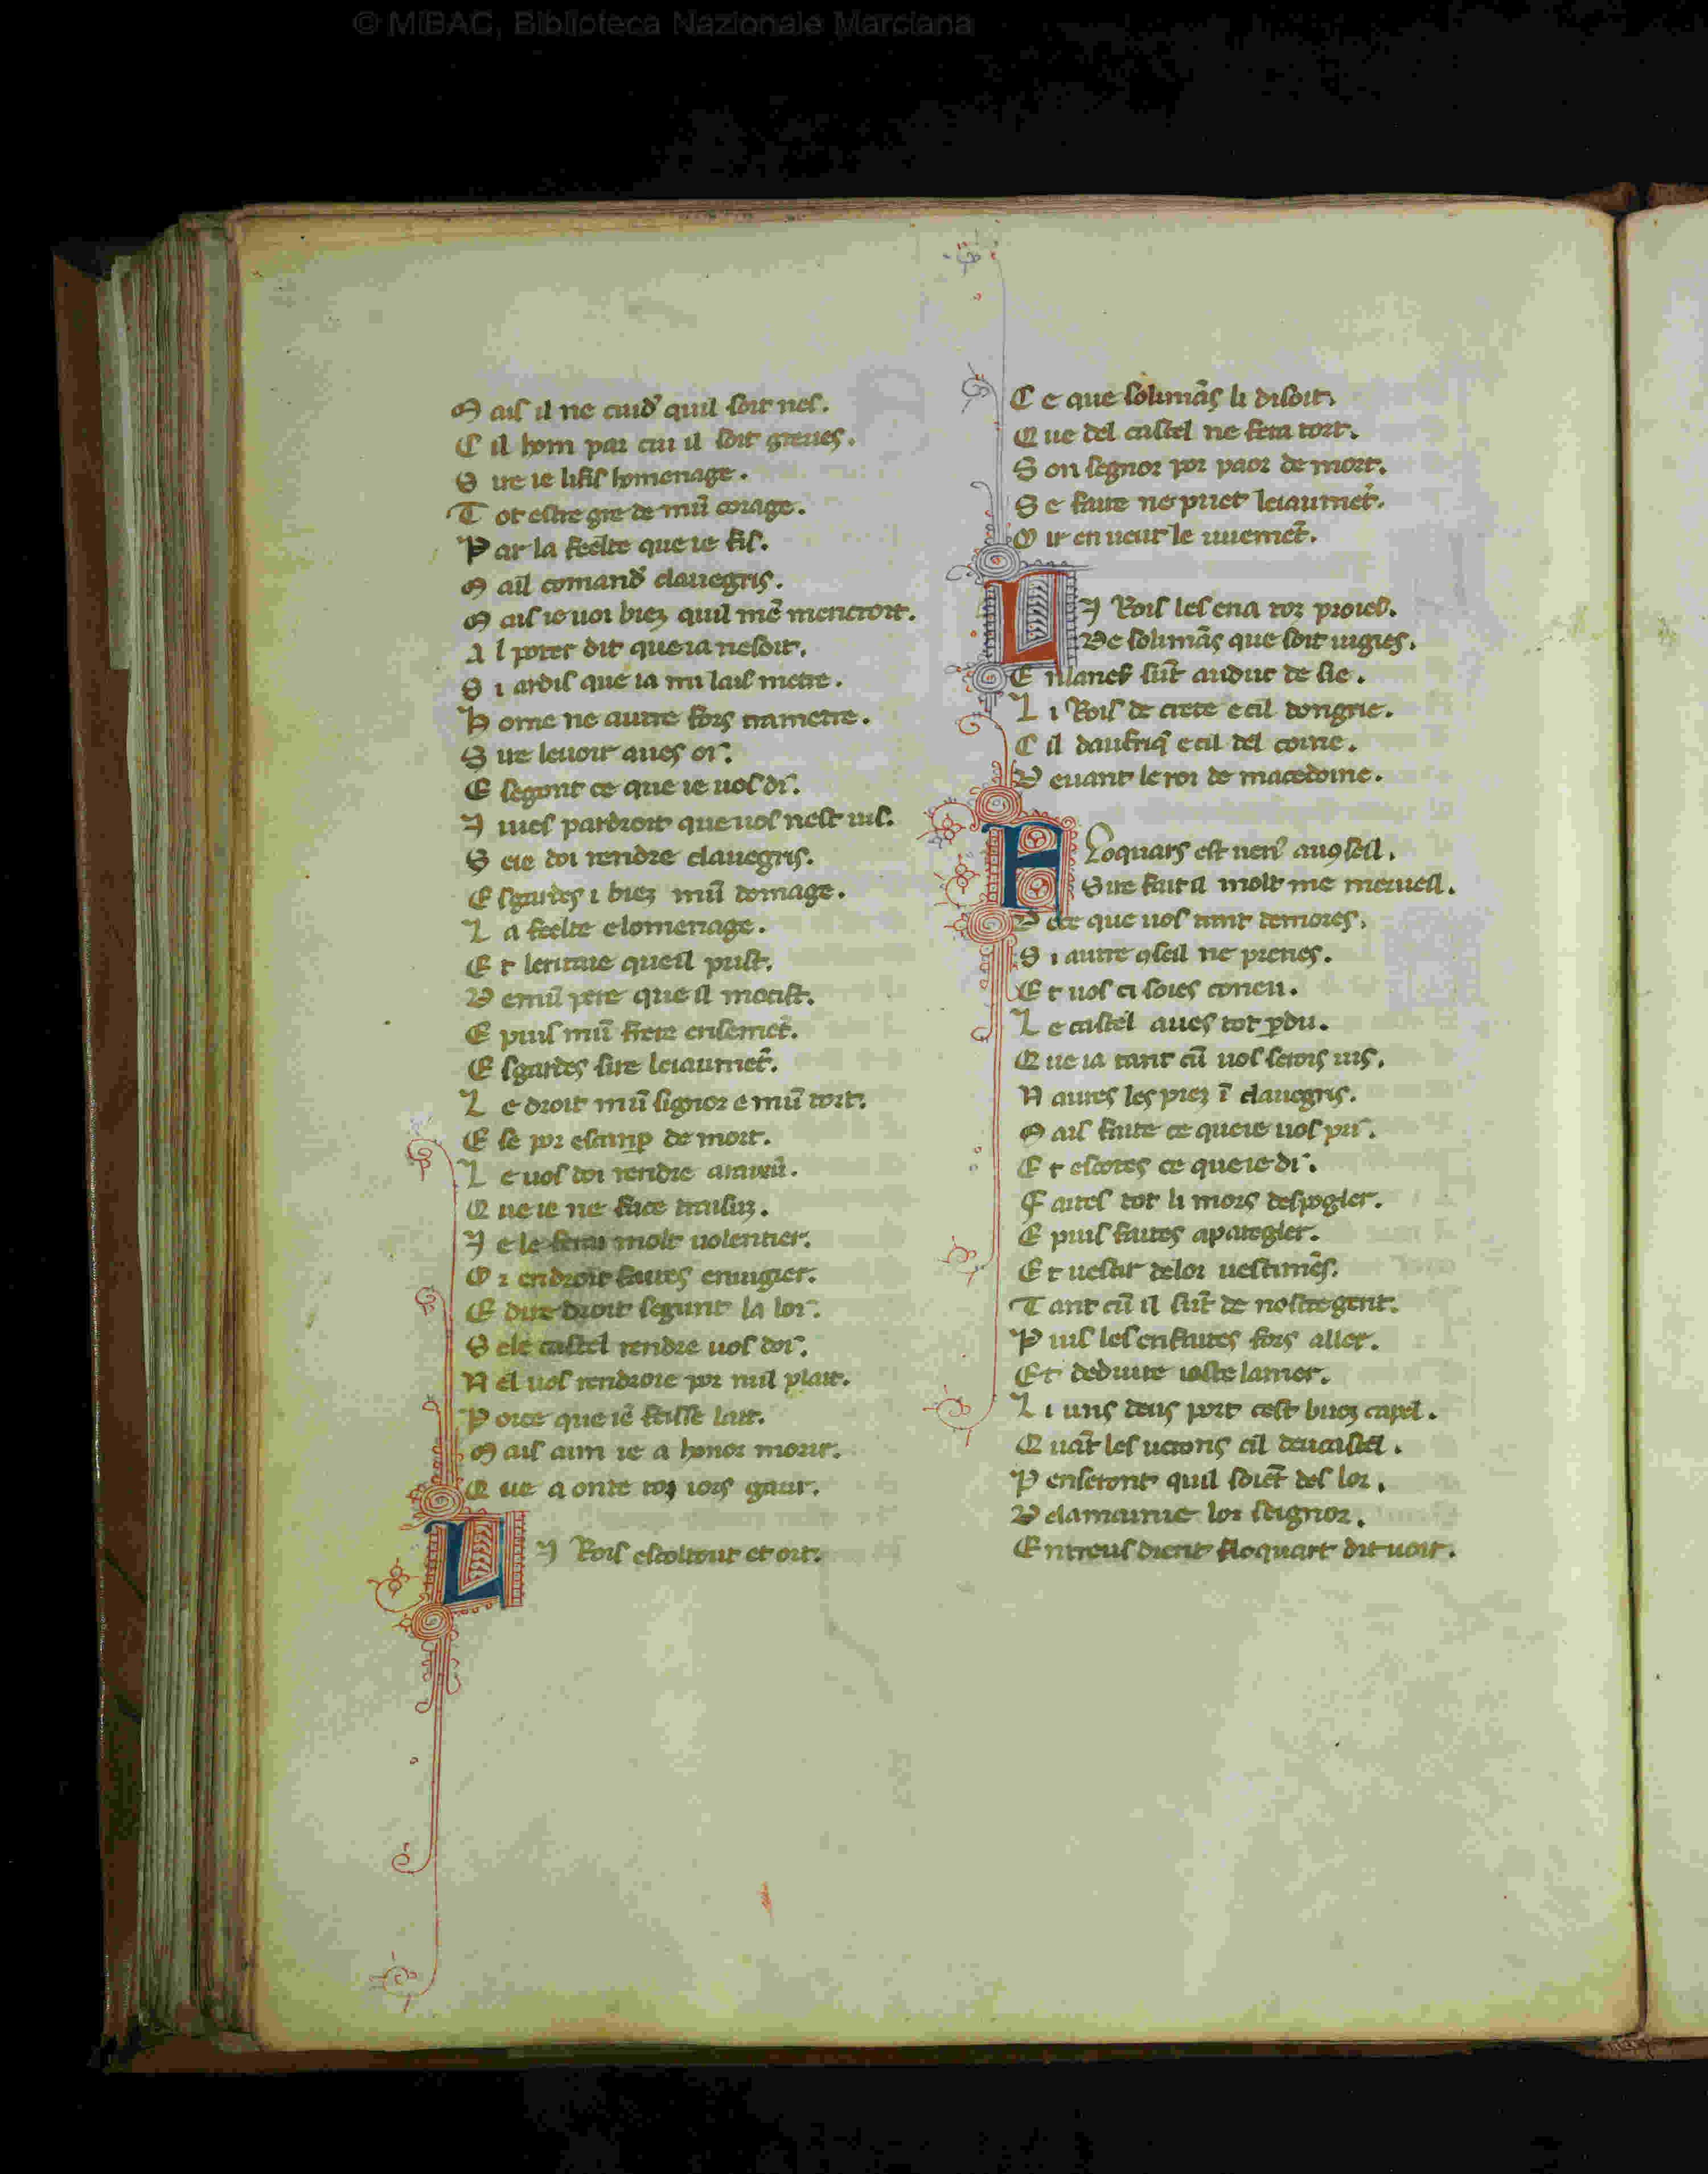 © MiBAC, Biblioteca Nazionale Marciana
M ais il ne cuid' quil soit nes.
C il hom par cui il soit greues.
Q ue ie li fis homenage.
T ot estre gre de mū corage.
P ar la feelte que ie fis.
M ail comand' clauegris.
M ais ie uoi biez quil mē mencroit.
A l porter dit que ia ne soit.
S i ardis que ia mi lais metre.
H ome ne autre fors trametre.
S ire leuoir aues oi.
E segont ce que ie uos di.
I uies par droit que uos nest uis.
S eie doi rendre clauegris.
E sgardes i biez mū domage.
L a feelte elomenage.
E t leritaie queil prist.
D emū pere que il mocist.
E puis mū frere ensemēt.
E sgardes sire leiaumēt.
L e droit mū signor e mū tort.
E se por escamp de mort.
L e uos doi rendre
Q ue ie ne face
I e le ferai molt uolentier.
O r endroit faites eniugier.
E dire droit segunt la loi.
S ele castel rendre uos doi.
N el uos rendroie por nuil plait.
P orce que iē feisse lait.
M ais aim ie a honor morir.
Q ue a onte toz iors gaur.
L I Rois escoltout et oit.
C e que solimās li disoit.
Q ue del castel ne fera tort.
S on segnor por paor de mort.
S e faire ne puet leiaumēt.
O ir en ueut le iuiemēt.
L I Rois les ena toz proies.
De solimās que soit iugies.
E manes sūt andui de sie.
L i Rois de crete e cil dongrie.
C il daufriq̄ e cil del coine.
D euant le roi de macedoine.
F Loquars est uen' au 9seil.
Sire fait il molt me merueil.
D ece que uos tant demores.
S i autre 9seil ne prenes.
E t uos ci soies coneu.
L e castel aues tot p̱du.
Q ue ia tant cū uos serois uis.
N aures les piez ī clauegris.
M ais faite ce que ie uos pri.
E t escotes ce que ie di.
F aites tot li mors despogler.
E puis faites aparegler.
E t uestir delor uestimēs.
T ant cū il sūt de nostre gent.
P uis les en faites fors aller.
E t deduire ioste lamer.
L i uns deus port cest buez capel.
Q uāt les uerons cil deucastel.
P enseront quil soiēt des lor.
D elamainie lor seignor.
E ntreus dient floquart dit uoir.